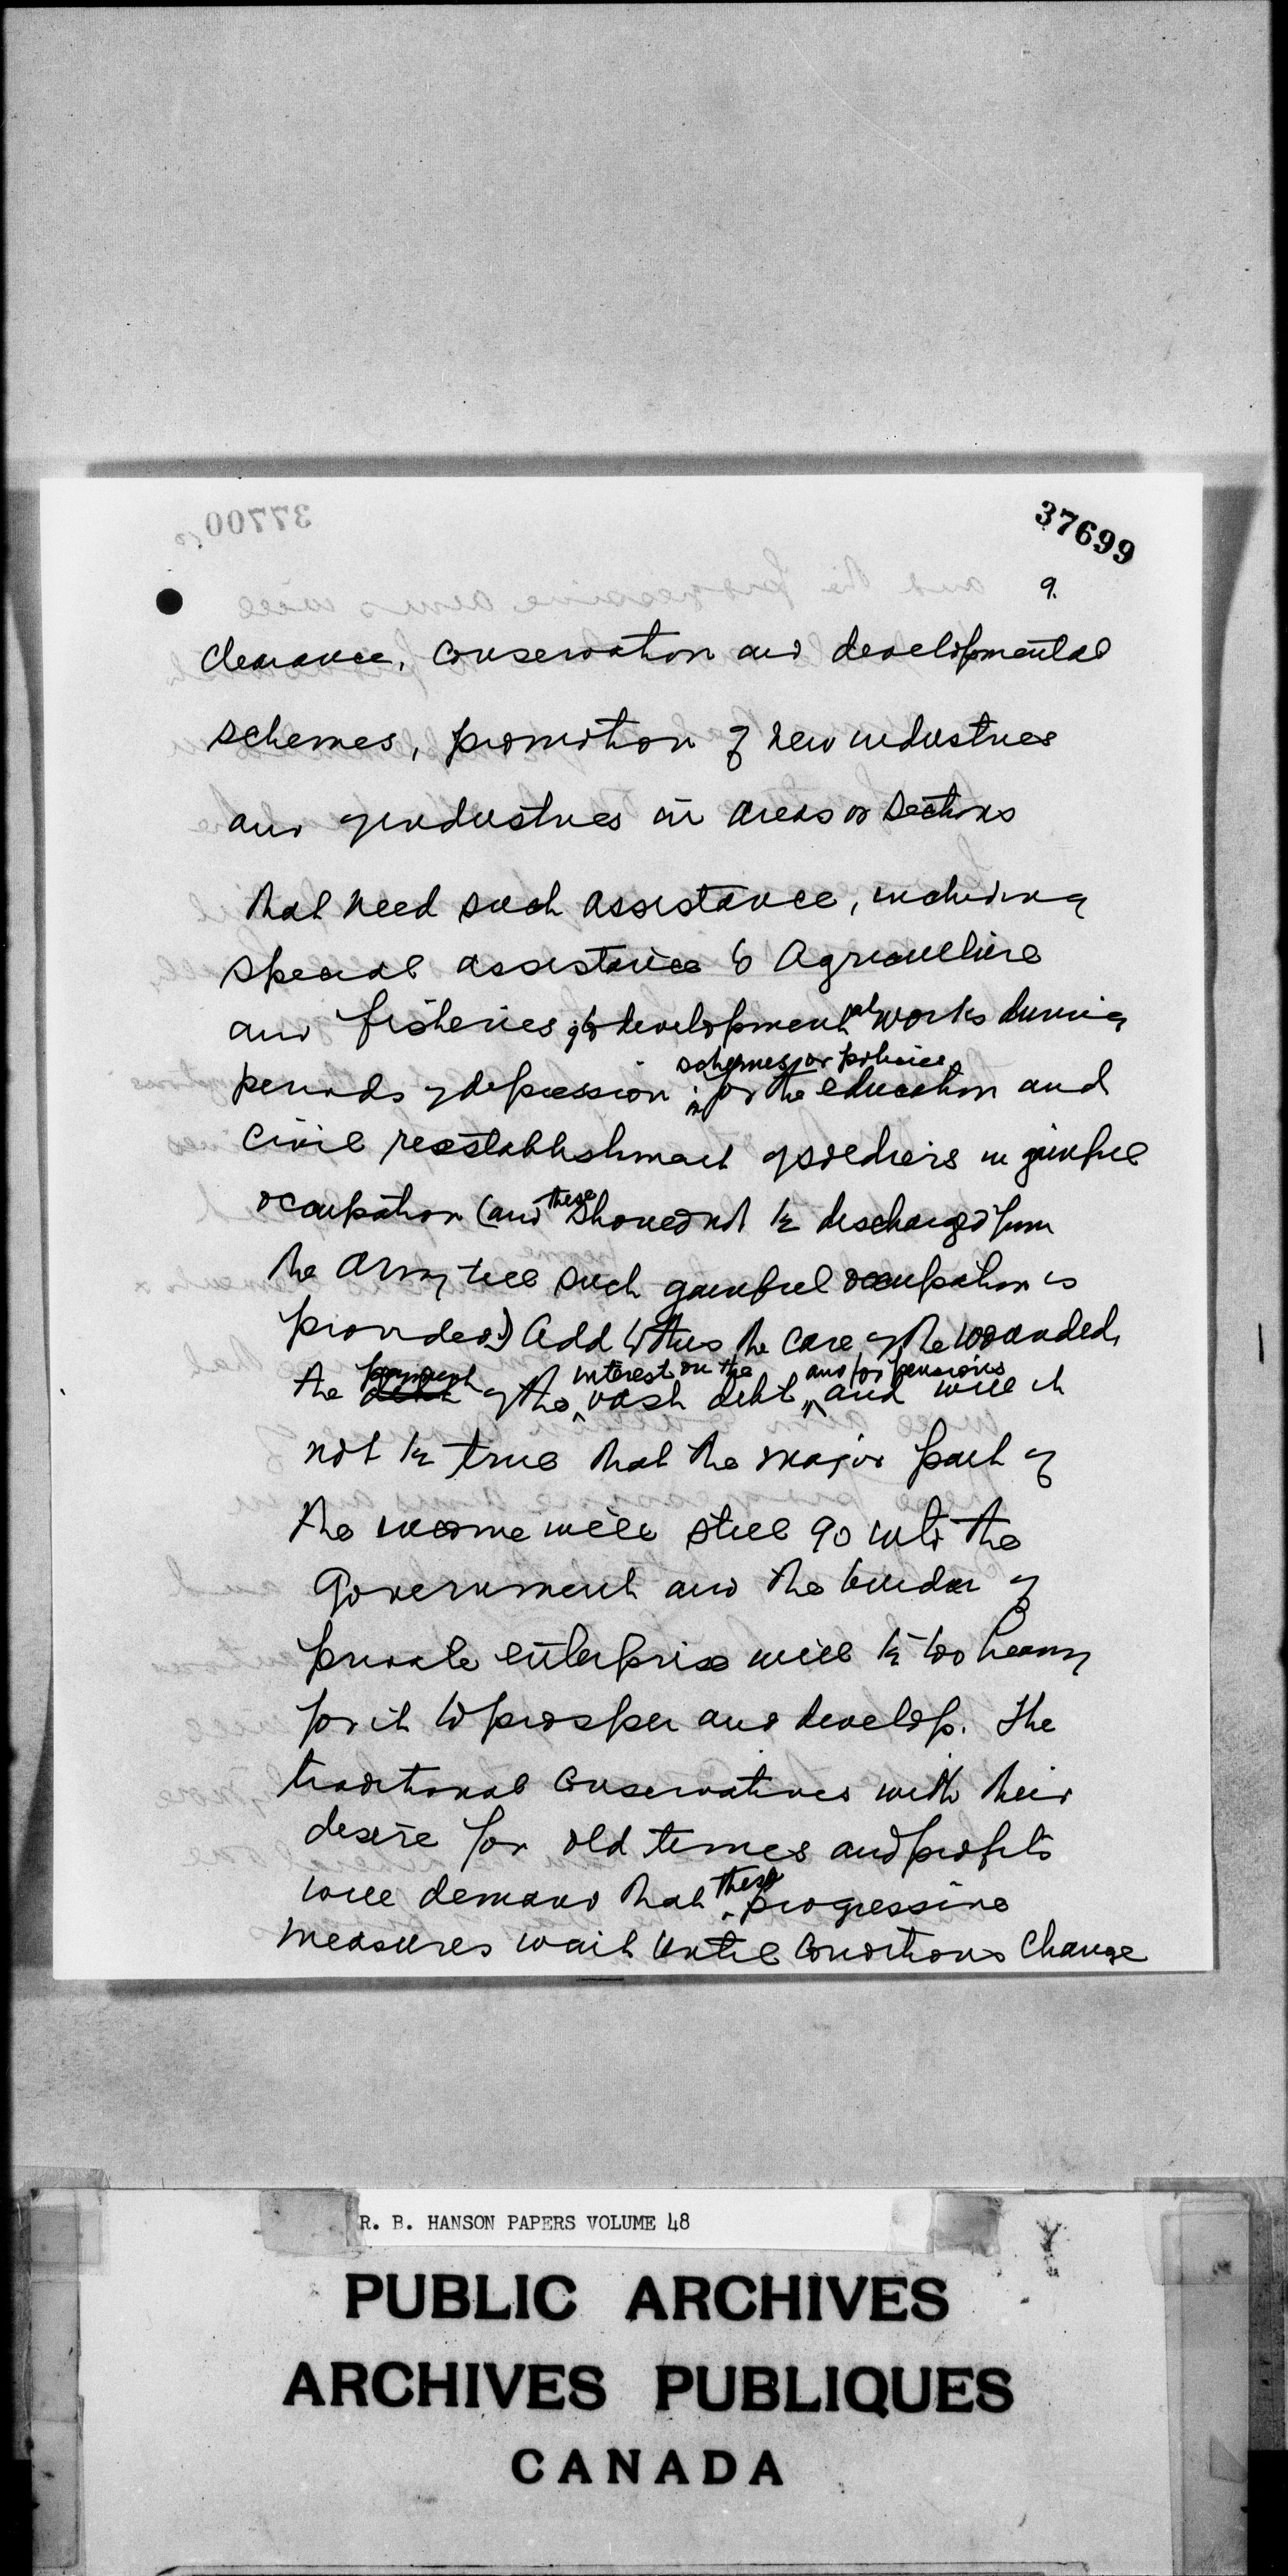 37699
9.
clearance, conservation and developmental
schemes, promotion of new industries
and of industries in areas or sections
that need such assistance, including
special assistance to Agriculture
and fisheries, to developmental works during
schemes or policies
periods of depression, for the education and
civil reestablishment of soldiers in gainful
these
occupation (and should not be discharged from
the Army till such gainful occupation is
provided.) Add to this the care of the wounded,
payment interest on the and/or pensions
the of the vast debt, and will it
not be true that the major part of
the income will still go into the
Government and the burden of
private enterprise will be too heavy
for it to prosper and develop. The
traditional Conservatives with their
desire for old times and profits
these
will demand that progressive
measures wait until conditions change
R. B. HANSON PAPERS VOLUME 48
PUBLIC ARCHIVES
ARCHIVES PUBLIQUES
CANADA